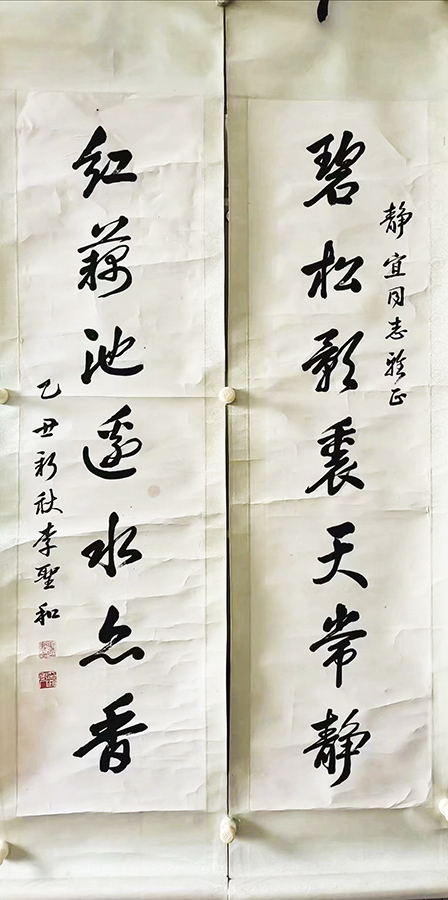 静宜同志雅正
碧松影裏天常静
紅藕池邊水亦香
乙丑新秋李聖和